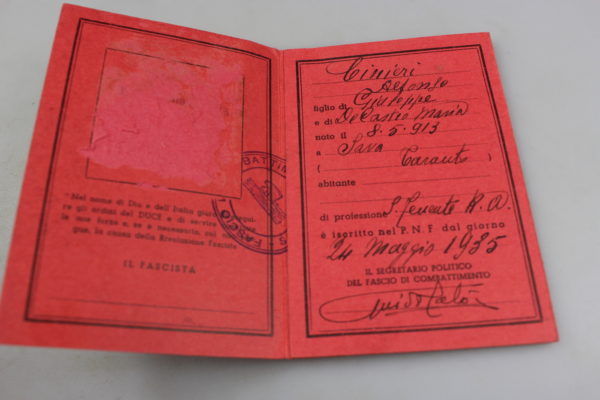 Nel nome di Dio e dell'Italia giuro di esegui-
re gli ordini del DUCE e di servire
le mie forze e, se è necessario, col mio
gue, la causa della Rivoluzione Fascista
IL FASCISTA
BATTIM
FASCIO
Cinieri
Alfonso
figlio di Giuseppe
e di DeCastro Maria
nato il 8.5.913
a Sava
( Taranto
abitante
di professione S. Tenente R. A.
è iscritto nel P. N. F. dal giorno
24 Maggio 1935
IL SEGRETARIO POLITICO
DEL FASCIO DI COMBATTIMENTO
Guido